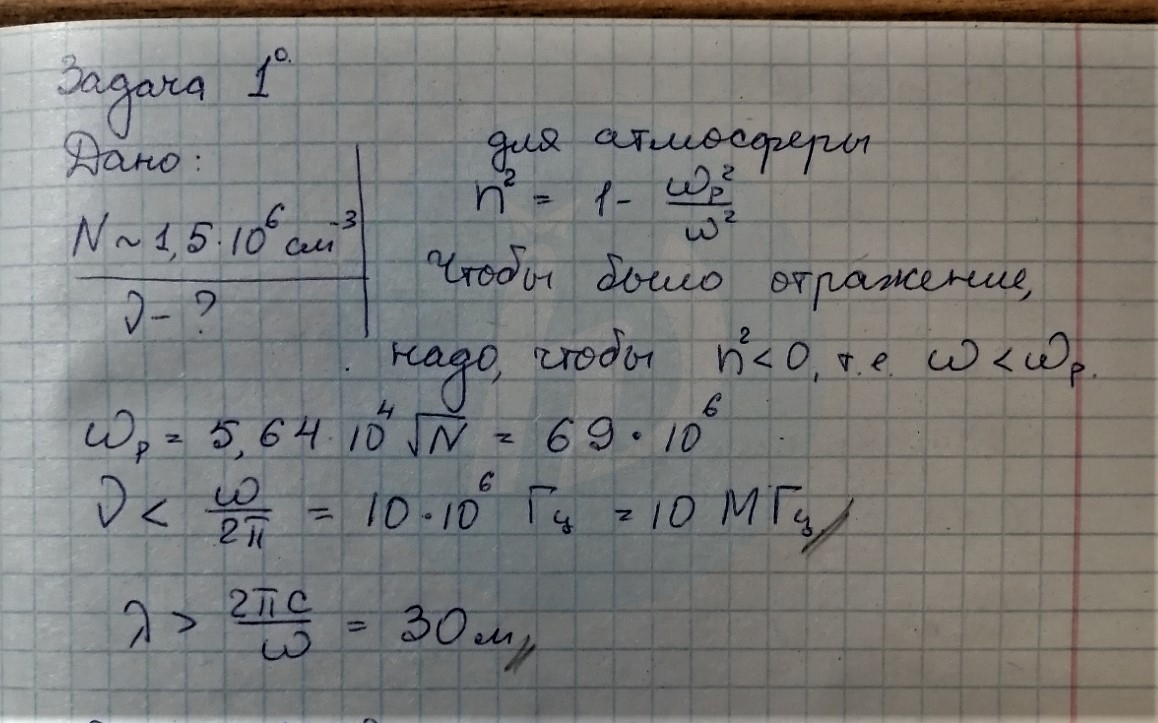 Задача 1°.
Дано:
N ~ 1,5·10⁶ см⁻³
ν - ?
для атмосферы
n² = 1 - ωₚ²/ω²
Чтобы было отражение,
надо, чтобы n² < 0, т.е. ω < ωₚ.
ωₚ = 5,64·10⁴ √N = 69·10⁶
ν < ω/2π = 10·10⁶ Гц = 10 МГц //
λ > 2πc/ω = 30 м //